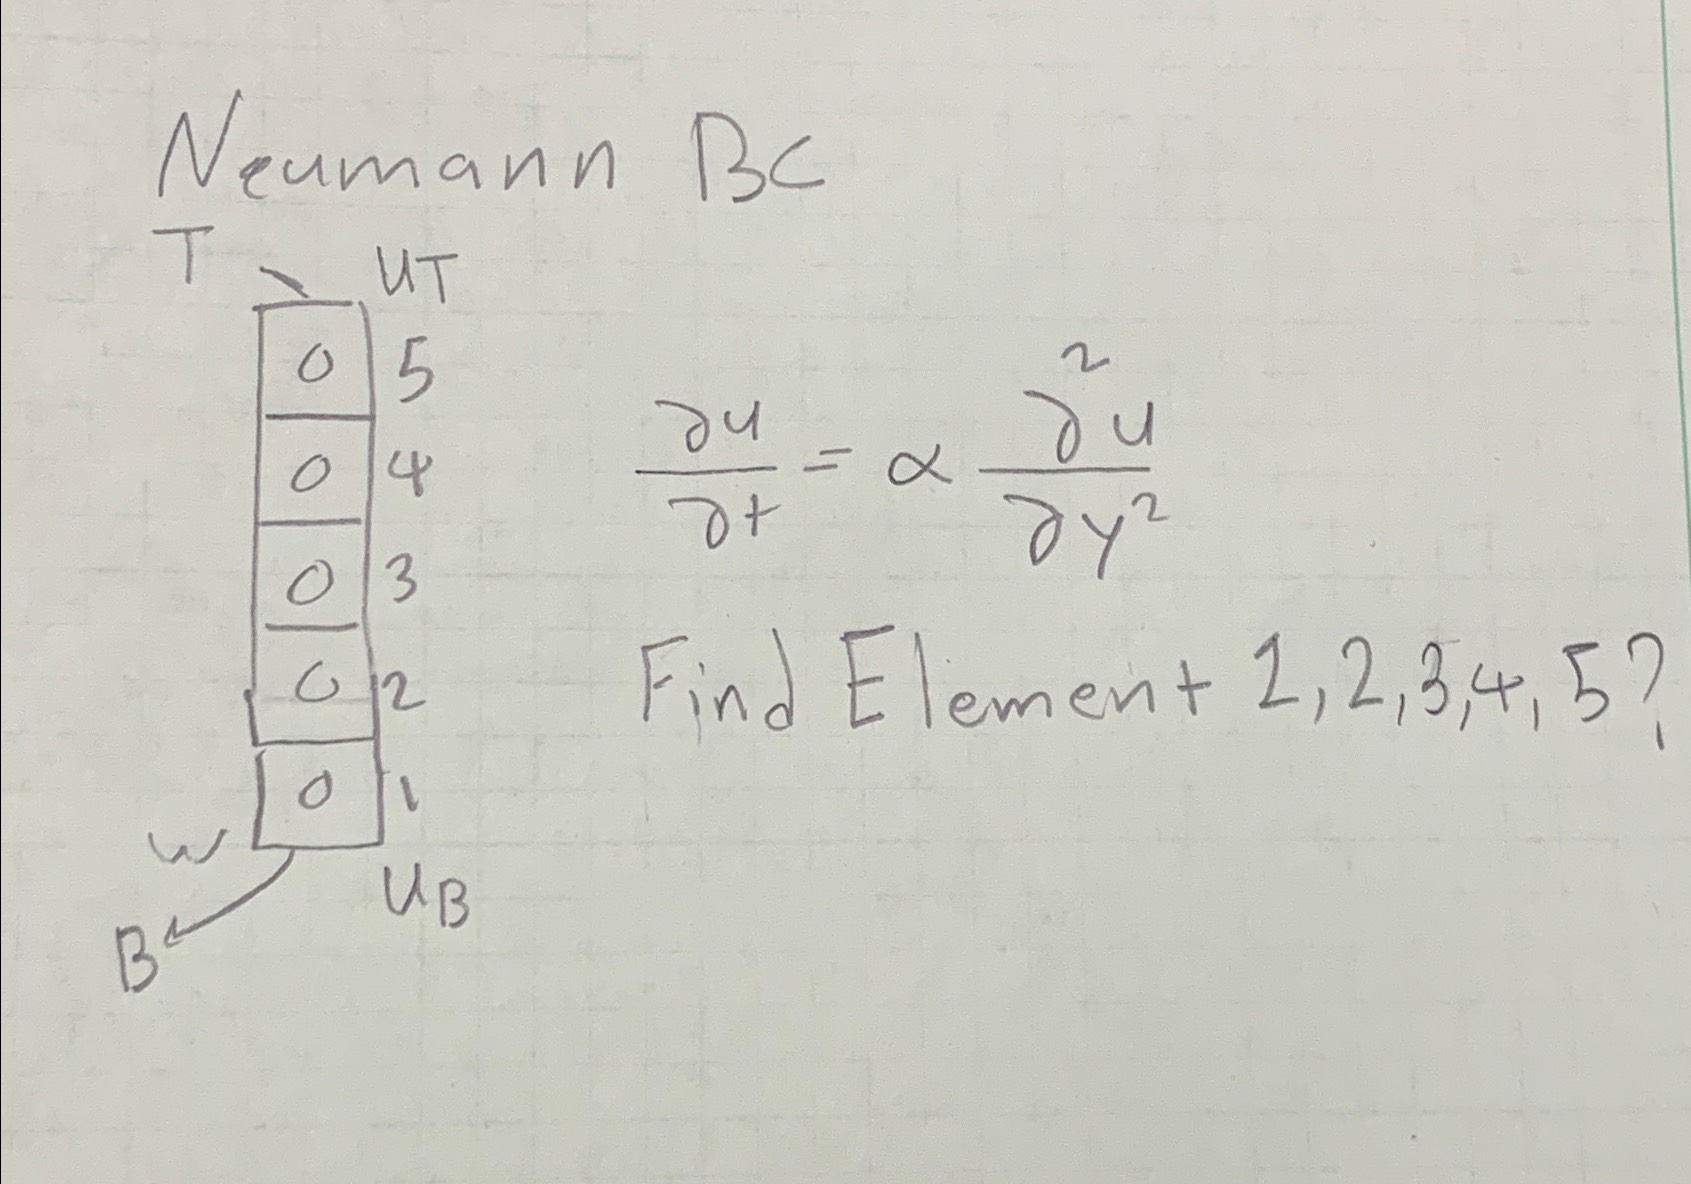 Neumann BC
T UT
0 5
0 4
0 3
0 2
0 1
W
UB
B
∂u/∂t = α ∂²u/∂y²
Find Element 1,2,3,4,5?